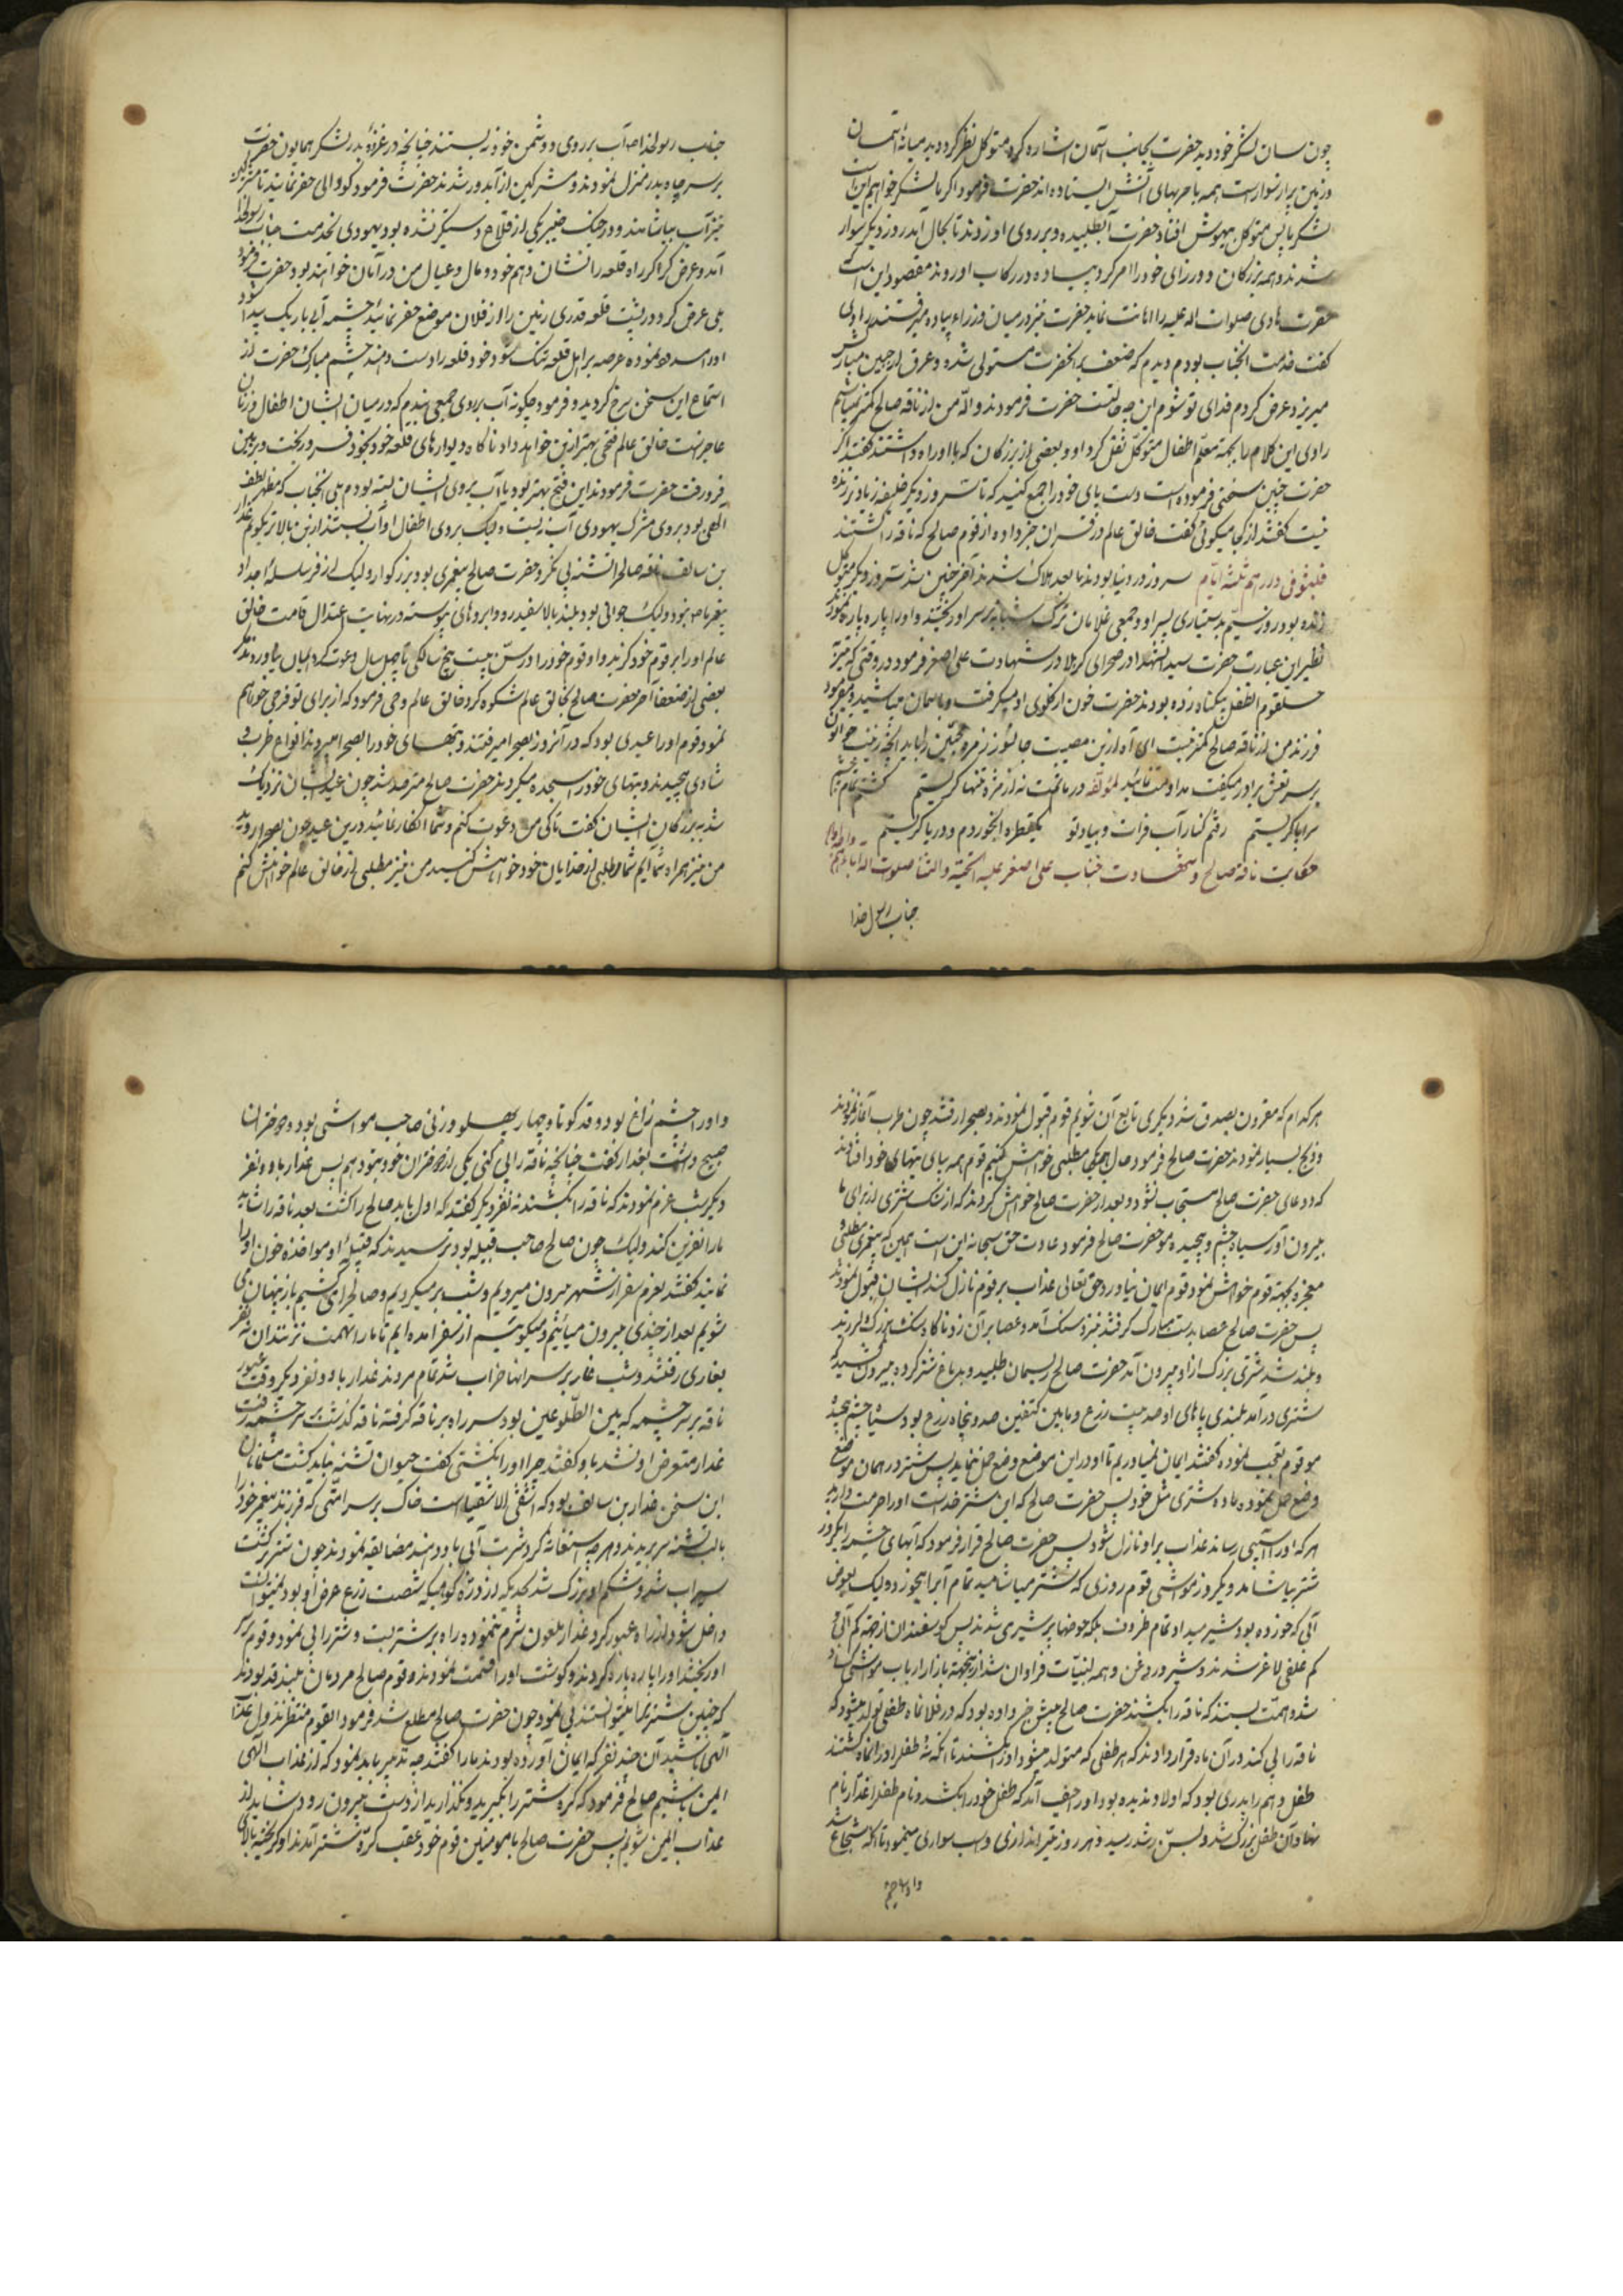 چون سان لشکر خود دید حضرت بجانب آسمان اشاره کرد متوکل نظر کرد دید میانهٔ آسمان
و زمین پر از سوار است همه با حربهای آتش ایستاده اند حضرت فرمود اگر ما لشکر خواهیم این است
لشکر ما پس متوکل بیهوش افتاد حضرت آب طلبیده و بر روی او زدند تا بحال آمد روز دیگر سوار
شدند و همه بزرگان و وزرای خود را امر کرد پیاده در رکاب او روند مقصود این است که
حضرت هادی صلوات اله علیه را اهانت نماید حضرت نیز در میان وزراء پیاده میرفتند راوی
گفت خدمت انجناب بودم دیدم که ضعف بر انحضرت مستولی شده و عرق از جبین مبارکش
میریزد عرض کردم فدای تو شوم این چه حالتست حضرت فرمودند واله من از ناقه صالح کمتر نمیباشم
راوی این کلام را بجهة معلم اطفال متوکل نقل کرد او و بعضی از بزرگان که با او راه داشتند گفتند اگر
حضرت چنین سخنی فرموده است دست پای خود را جمع کنید که تا سه روز دیگر خلیفه زیاد تر زنده
نیست گفتند از کجا میگوئی گفت خالق عالم در قرآن خبر داده از قوم صالح که ناقه را کشتند
فلبثوا فی دارهم ثلثة ایام سه روز در دنیا بودند ما بعد هلاک شدند آخر چنین شد سه روز دیگر متوکل
زنده بود و روز سیّم بدستیاری پسر او و جمعی غلامان ترک شبانه بر سر او ریختند و او را پاره پاره نمودند
نظیر این عبارت حضرت سید الشهدا در صحرای کربلا در شهادت علی اصغر فرمود در وقتی که تیر بر
حلقوم الطفل بیگناه زده بودند حضرت خون از گلوی او میگرفت و باسمان میپاشید و میفرمود
فرزند من از ناقه صالح کمتر نیست ای آه ازین مصیبت جانسوز زمره محبّین را باید انچه زینب خواتون
بر سر نعش برادر میگفت مداومت نمائید لمؤلفه در ماتمت نه از مژه تنها گریستم گشتم تمام چشم
سراپا گریستم رفتم کنار آب فرات و بیاد تو یکقطره آبخوردم و دریا گریستم
حکایت ناقه صالح و شهادت جناب علی اصغر علیه التحیة والثنا صلوت اله
جناب رسول خدا
جناب رسولخدا آب بر روی دوشمن خود نه بستند چنانچه در غزوهٔ بدر لشکر همایون حضرت
بر سر چاه بدر منزل نمودند و مشرکین از آب دور شدند حضرت فرمود گودالی حفر نمایند تا مشرکین
نیز آب بیاشامند و در جنگ خیبر یکی از قلاع دستگیر نشده بود یهودی بخدمت جناب رسولخدا
آمد و عرض کرد اگر راه قلعه را نشان دهم خود و مال و عیال من در آمان خواهند بود حضرت فرمود
بلی عرض کرد در پشت قلعه قدری زمین را از فلان موضع حفر نمائید چشمه آبی باریک پیدا شود
او را سد نموده عرصه بر اهل قلعه تنگ شود خود قلعه را دست دهند چشم مبارک حضرت از
استماع این سخن سرخ گردید و فرمود چگونه آب بروی جمعی بندم که در میان ایشان اطفال و زنان
عاجز هست خالق عالم فتحی بهتر ازین خواهد داد ناگاه دیوارهای قلعه خود بخود فرو ریخت و بزمین
فرو رفت حضرت فرمودند این فتح بهتر بود یا آب بروی ایشان بسته بودم بلی انجناب که مظهر لطف
الهی بود بروی مشرک یهودی آب نه بست ولیک بروی اطفال او آب بستند ازین بالاتر بگویم غدار
بن سالف ناقه صالح را تشنه پی نکرد حضرت صالح پیغمبری بود بزرگوار ولیک از سلسلهٔ اجداد
پیغمبر ما نبود ولیک جوانی بود بلند بالا سفید رو و ابروهای پیوسته در نهایت اعتدال قامت خالق
عالم او را بر قوم خود گزید و او قوم خود را در سنّ بیست پنج سالگی تا چهل سال دعوت کرد ایمان نیاوردند مگر
بعضی از ضعفا آخر حضرت صالح بخالق عالم شکوه کرد خالق عالم وحی فرمود که از برای تو فرجی خواهم
نمود قوم او را عیدی بود که در آنروز بصحرا میرفتند و بتهای خود را بصحرا میبردند انواع طرب و
شادی میچیدند و بتهای خود را سجده میکردند حضرت صالح مترصد شد چون عید ایشان نزدیک
شد به بزرگان ایشان گفت تا کی من دعوت کنم و شما انکار نمائید درین عید چون بصحرا روید
من نیز همراه شما آیم شما مطلبی از خدایان خود خواهش کنید من نیز مطلبی از خالق عالم خواهش کنم
هر کدام که مقرون بصدق شد دیگری تابع آن شویم قوم قبول نمودند و بصحرا رفتند چون طرب آغاز نمودند
و ذبح بسیار نمودند حضرت صالح فرمود حال هر یک مطلبی خواهش کنیم قوم همه بپای بتهای خود افتادند
که دعای حضرت صالح مستجاب نشود و بعد از حضرت صالح خواهش کردند که ازین سنگ شتری از برای ما
بیرون آور سیاه چشم و پیچیده مو حضرت صالح فرمود عادت حق سبحانه این است همین که پیغمبری مطلبی و
معجزه بجهة قوم خواهش نمود و قوم ایمان نیاورد حق تعالی عذاب بر قوم نازل کند ایشان قبول نمودند
پس حضرت صالح عصا بدست مبارک گرفتند نزد سنگ آمد و عصا بر آن زد ناگاه سنگ بزرگ لرزید
و بلند شد شتری بزرگ از او بیرون آمد حضرت صالح ریسمان طلبید و بدماغ شتر کرده بیرون کشید که
شتری در آمد بلندی پاهای او صد بیست زرع و مابین کتفین صد و پنجاه زرع بود سیاه چشم پیچیده
مو قوم تعجب نموده گفتند ایمان نمیاوریم تا او در این موضع وضع حمل نماید پس شتر در همان موضع
وضع حمل نموده ماده شتری مثل خود پس حضرت صالح که این شتر خداست او را حرمت دارید
هر که او را آسیبی رساند عذاب بر او نازل شود پس حضرت صالح قرار فرمود که آبهای چشمه را یکروز
شتر بیاشامد و یکروز مواشی قوم روزی که شتر میاشامید تمام آبرا میخورد و لیک بعوض
آبی که خورده بود شیر میداد تمام ظروف بلکه حوضها پر شیر میشدند پس گوسفندان از جهة کم آبی و
کم علفی لاغر شدند و شیر و روغن و همه لبنیّات فراوان شد ازینجهة بازار ارباب مواشی کساد
شد و همت بستند که ناقه را بکشند حضرت صالح پیش خبر داده بود که در فلان ماه طفلی تولد میشود که
ناقه را پی کند در آن ماه قرار دادند که هر طفلی که متولد میشود او را بکشند تا آنکه نه طفل را در انماه کشتند
طفل دهم را پدری بود که اولاد ندیده بود او را حیف آمد که طفل خود را بکشد و نام طفل را غدار نام
نهاد آن طفل بزرگ شد و بسنّ رشد رسید و هر روز تیر اندازی و اسب سواری مینمود تا آنکه شجاع شد
و او را چشم
و او را چشم زاغ بود و قد کوتاه و چهار پهلو و زنی صاحب مواشی بود دختران
صبیح داشت بغدار گفت چنانچه ناقه را پی کنی یکی از دختران خود بتو دهم پس غدار با دو نفر
دیگر شب عزم نمودند که ناقه را بکشند نه نفر دیگر گفتند که اول باید صالح را کشت بعد ناقه را شاید
ما را نفرین کند ولیک چون صالح صاحب قبیله بود ترسیدند که قبیلهٔ او مواخذه خون او را
نمایند گفتند بعزم سفر از شهر بیرون میرویم و شب بر میگردیم و صالح را میکشیم باز پنهان می
شویم بعد از چندی بیرون میائیم و میگوئیم از سفر امده ایم تا ما را تهمت نزنند ان نه نفر
بغاری رفتند و شب غار بر سر انها خراب شد تمام مردند غدار با دو نفر دیگر وقت عبور
ناقه بر سر چشمه که بین الطلوعین بود سر راه بر ناقه گرفته ناقه گذشت بر سر چشمه رفت
غدار متعرض او نشد باو گفتند چرا او را نکشتی گفت حیوان تشنه نباید کشت مسلمانان
این سخن غدار بن سالف بود که اشقی الاشقیاست خاک بر سر امّتی که فرزند پیغمبر خود را
با لب تشنه سر بریدند و هر چه استغاثه کرد شربت آبی باو دهند مضایقه نمودند چون شتر برگشت
سیراب شد و شکم او بزرگ شد بحدیکه از دره کوهیکه شصت زرع عرض او بود نمیتوانست
داخل شود از راه عبور کرد غدار ملعون شرم ننموده راه بر شتر بست و شتر را پی نمود و قوم بر سر
او ریختند او را پاره پاره کردند و گوشت او را قسمت نمودند و قوم صالح مردمان بلند قد بودند
که چنین شتر را میتوانستند پی نمود چون حضرت صالح مطلع شد فرمود ایقوم منتظر نزول عذاب
الهی باشید آن چند نفر که ایمان آورده بودند ما را گفتند چه تدبیر باید نمود که از عذاب الهی
ایمن باشیم صالح فرمود که کره شتر را بگیرید و نگذارید از دست بیرون رود شاید از
عذاب ایمن شویم پس حضرت صالح با مومنین قوم خود عقب کرّه شتر آمدند او گریخته بالای